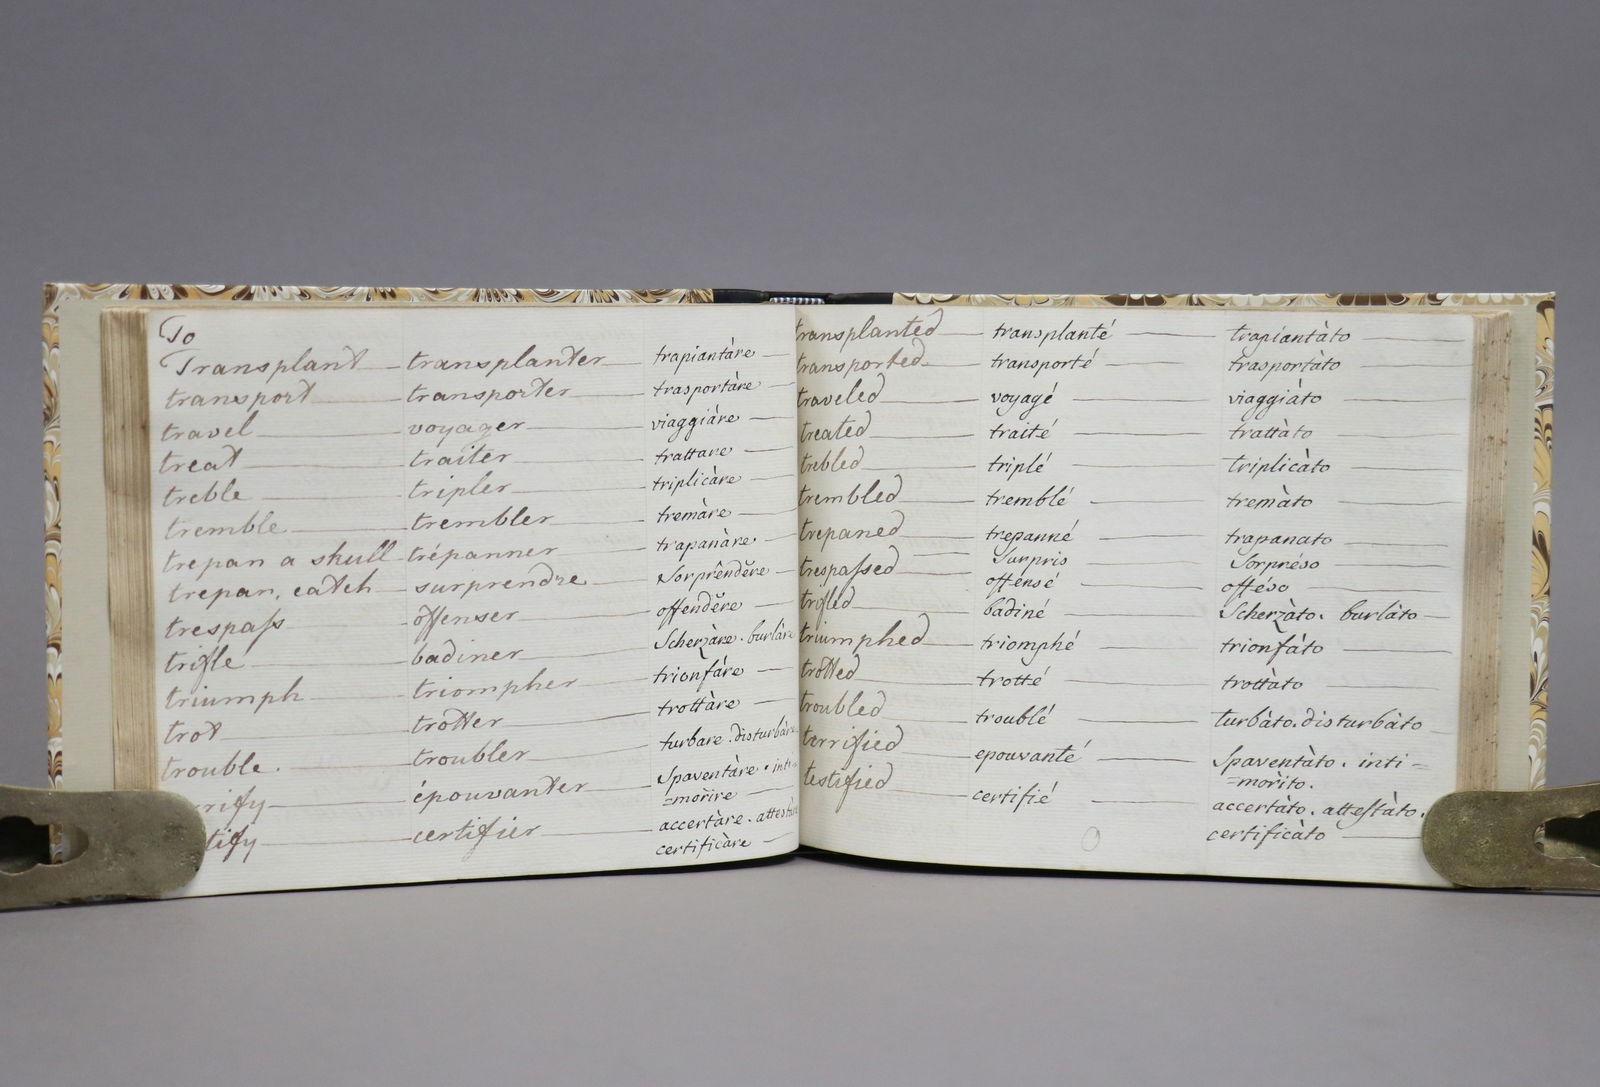 To
Transplant transplanter trapiantàre
transport transporter trasportàre
travel voyager viaggiàre
treat traiter trattare
treble tripler triplicàre
tremble trembler tremàre
trepan a skull trépanner trapanàre
trepan, catch surprendre Sorprêndĕre
trespaſs offenser offendĕre
trifle badiner Scherzàre. burlàre
triumph triompher trionfáre
trot trotter trottàre
trouble. troubler turbare. disturbàre
épouvanter Spaventàre. inti=
=morire
certifier accertàre.
certificàre
transplanted transplanté trapiantàto
transported transporté trasportàto
traveled voyagé viaggiàto
treated traité trattàto
trebled triplé triplicàto
trembled tremblé tremàto
trepaned trepanné trapanato
Surpris Sorpréso
trespaſsed offensé offéso
trifled badiné Scherzàto. burlàto
triumphed triomphé trionfàto
trotted trotté trottàto
troubled troublé turbàto. disturbàto
terrified epouvanté Spaventàto. inti=
=morìto.
testified certifié accertàto. atteſtàto.
certificàto